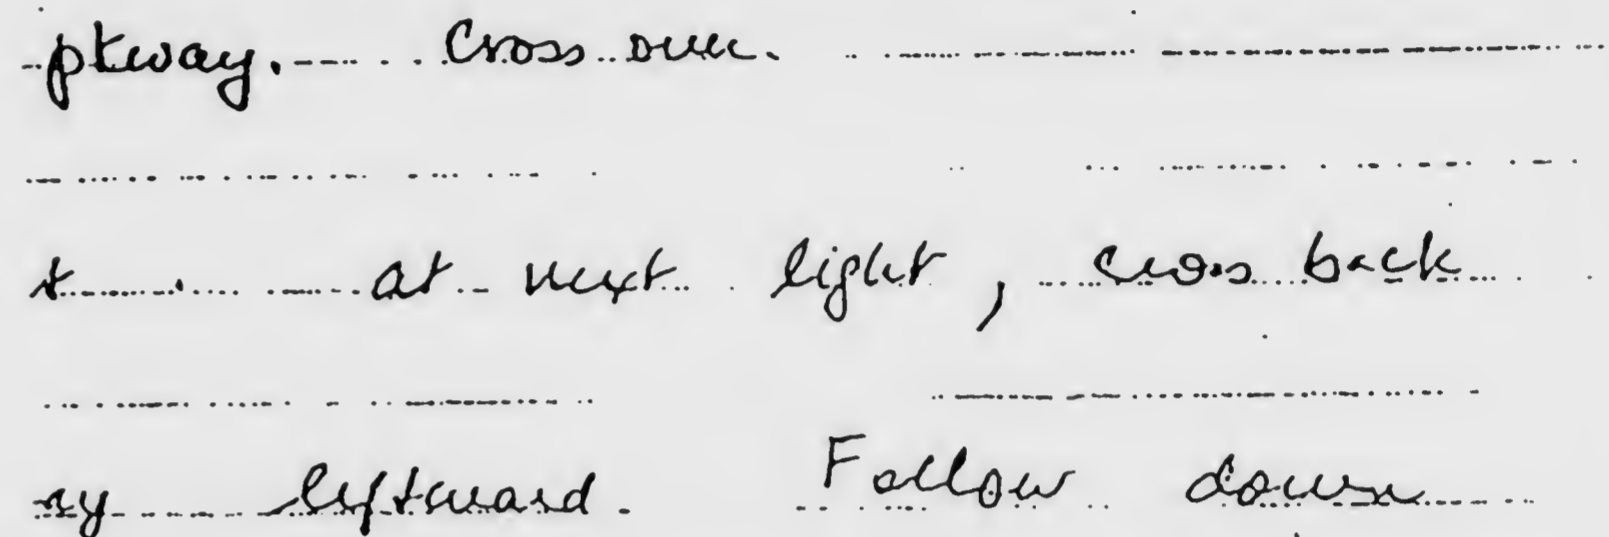 pkway. Cross over.
at next light, cross back
leftward. Follow down